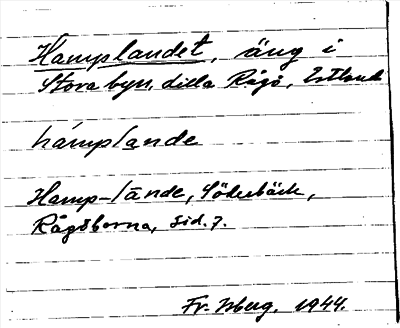 Hamplandet, äng i
Stora byn, Lilla Rågö, Estland
hámplande
Hamp-lānde, Söderbäck,
Rågöborna, Sid. 7.
Fr. Isberg. 1944.